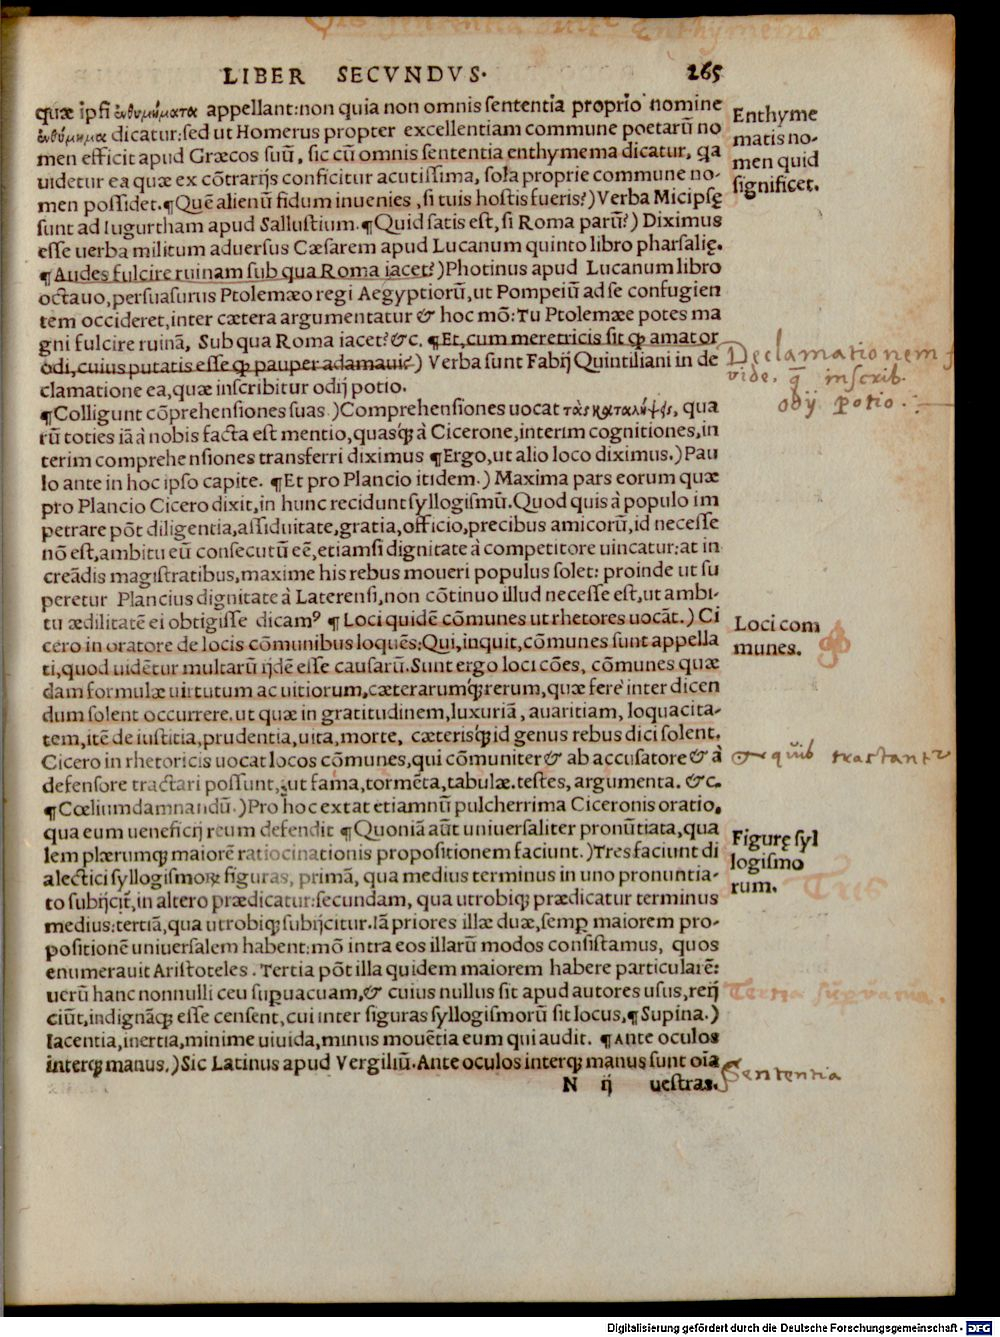 LIBER SECVNDVS. 265
quæ ipſi ἐνθυμήματα appellant: non quia non omnis ſententia proprio nomine
ἐνθύμημα dicatur: ſed ut Homerus propter excellentiam commune poetarũ no
men efficit apud Græcos ſuũ, ſic cũ omnis ſententia enthymema dicatur, ꝗa
uidetur ea quæ ex cõtrarijs conficitur acutiſſima, ſola proprie commune no-
men poſſidet. ¶Quẽ alienũ fidum inuenies, ſi tuis hoſtis fueris?) Verba Micipſę
ſunt ad Iugurtham apud Salluſtium. ¶Quid ſatis eſt, ſi Roma parũ?) Diximus
eſſe uerba militum aduerſus Cæſarem apud Lucanum quinto libro pharſalię.
¶Audes fulcire ruinam ſub qua Roma iacet?) Photinus apud Lucanum libro
octauo, perſuaſurus Ptolemæo regi Aegyptiorũ, ut Pompeiũ ad ſe confugien
tem occideret, inter cætera argumentatur & hoc mõ: Tu Ptolemæe potes ma
gni fulcire ruinã, Sub qua Roma iacet? &c. ¶Et, cum meretricis ſit ꝙ amator
odi, cuius putatis eſſe ꝙ pauper adamauit) Verba ſunt Fabij Quintiliani in de
clamatione ea, quæ inſcribitur odij potio.
¶Colligunt cõprehenſiones ſuas.) Comprehenſiones uocat τὰς καταλήψεις, qua
rũ toties iã à nobis facta eſt mentio, quasq́; à Cicerone, interim cognitiones, in
terim comprehenſiones transferri diximus ¶Ergo, ut alio loco diximus.) Pau
lo ante in hoc ipſo capite. ¶Et pro Plancio itidem.) Maxima pars eorum quæ
pro Plancio Cicero dixit, in hunc recidunt ſyllogiſmũ. Quod quis à populo im
petrare põt diligentia, aſſiduitate, gratia, officio, precibus amicorũ, id neceſſe
nõ eſt, ambitu eũ conſecutũ eẽ, etiamſi dignitate à competitore uincatur: at in
creãdis magiſtratibus, maxime his rebus moueri populus ſolet: proinde ut ſu
peretur Plancius dignitate à Laterenſi, non cõtinuo illud neceſſe eſt, ut ambi-
tu ædilitatẽ ei obtigiſſe dicamꝰ ¶Loci quidẽ cõmunes ut rhetores uocãt.) Ci
cero in oratore de locis cõmunibus loquẽs: Qui, inquit, cõmunes ſunt appella
ti, quod uidẽtur multarũ ijdẽ eſſe cauſarũ. Sunt ergo loci cões, cõmunes quæ
dam formulæ uirtutum ac uitiorum, cæterarumq́; rerum, quæ ferè inter dicen
dum ſolent occurrere. ut quæ in gratitudinem, luxuriã, auaritiam, loquacita-
tem, itẽ de iuſtitia, prudentia, uita, morte, cæterisq́; id genus rebus dici ſolent.
Cicero in rhetoricis uocat locos cõmunes, qui cõmuniter & ab accuſatore & à
defenſore tractari poſſunt, ut fama, tormẽta, tabulæ. teſtes, argumenta. &c.
¶Cœlium damnandũ.) Pro hoc extat etiamnũ pulcherrima Ciceronis oratio,
qua eum ueneficij reum defendit ¶Quoniã aũt uniuerſaliter pronũtiata, qua
lem plærumq; maiorẽ ratiocinationis propoſitionem faciunt.) Tres faciunt di
alectici ſyllogiſmoꝝ figuras, primã, qua medius terminus in uno pronuntia-
to ſubijcit̃, in altero prædicatur: ſecundam, qua utrobiq; prædicatur terminus
medius: tertiã, qua utrobiq; ſubijcitur. Iã priores illæ duæ, ſemꝑ maiorem pro-
poſitionẽ uniuerſalem habent: mõ intra eos illarũ modos conſiſtamus, quos
enumerauit Ariſtoteles. Tertia põt illa quidem maiorem habere particularẽ:
uerũ hanc nonnulli ceu ſuꝑuacuam, & cuius nullus ſit apud autores uſus, reij
ciũt, indignãq; eſſe cenſent, cui inter figuras ſyllogiſmorũ ſit locus, ¶Supina.)
Iacentia, inertia, minime uiuida, minus mouẽtia eum qui audit. ¶Ante oculos
interq; manus.) Sic Latinus apud Vergiliũ. Ante oculos interq; manus ſunt oĩa
N ij ueſtras.
Enthyme
matis no-
men quid
ſignificet.
Declamationem
vide. q̃ inscrib.
odij potio.
Loci com
munes.
quib tractantur
Figurę ſyl
logiſmo
rum.
Tres
Tertia supvacua.
Sententia
Digitalisierung gefördert durch die Deutsche Forschungsgemeinschaft - DFG